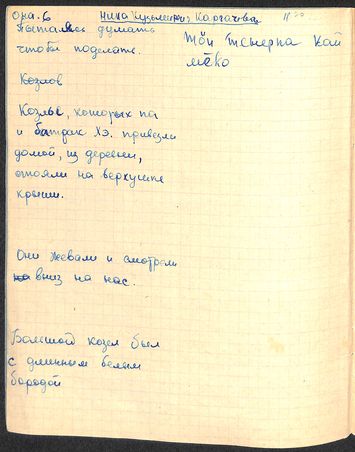 Она. 6 Нина Кузьминична Каргачова 11
пытаясь думать
чтобы поделать.
Той кай
мёко
Козлов
Козлы, которых па
и батрак Хэ. привезли
домой, из деревни,
стояли на верхушке
крыши.
Они жевали и смотрели
вниз на нас.
Большой козел был
с длинным белым
бородой